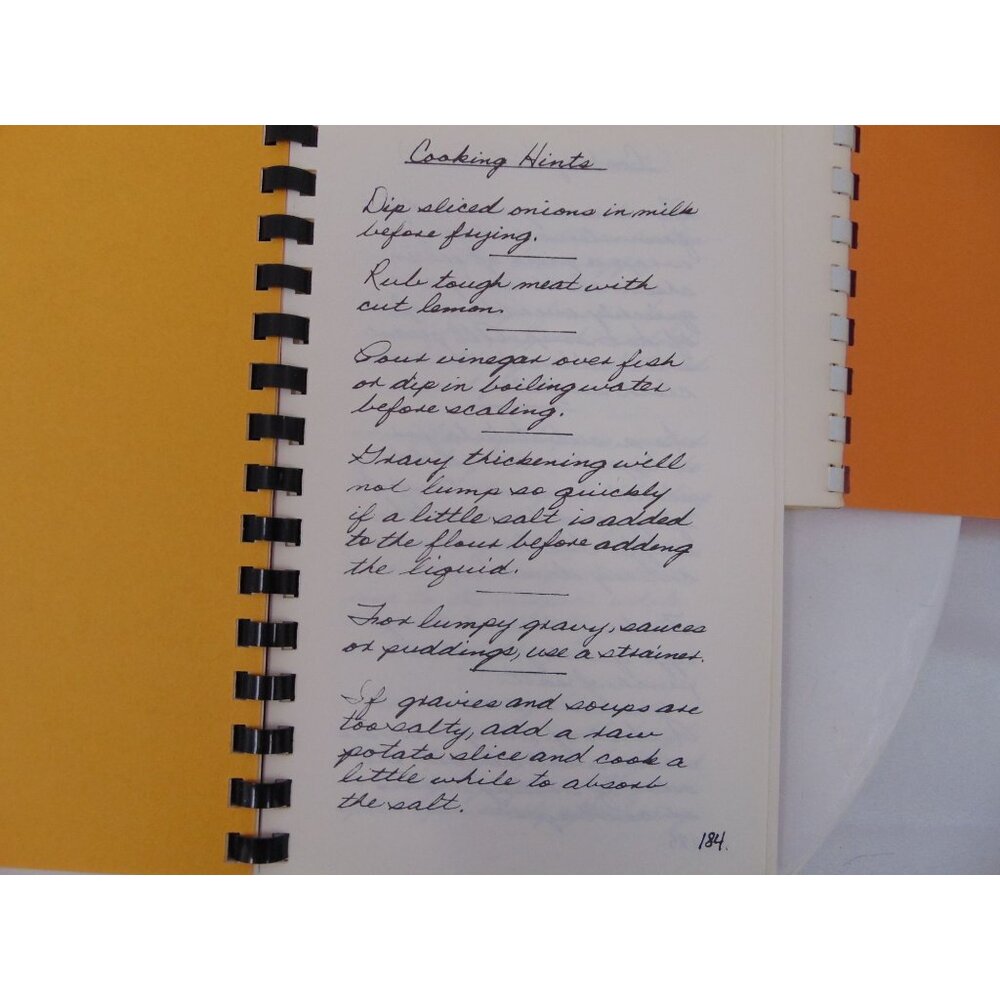 Cooking Hints
Dip sliced onions in milk
before frying.
Rub tough meat with
cut lemon.
Pour vinegar over fish
or dip in boiling water
before scaling.
Gravy thickening will
not lump so quickly
if a little salt is added
to the flour before adding
the liquid.
For lumpy gravy, sauces
or puddings, use a strainer.
If gravies and soups are
too salty, add a raw
potato slice and cook a
little while to absorb
the salt.
184.